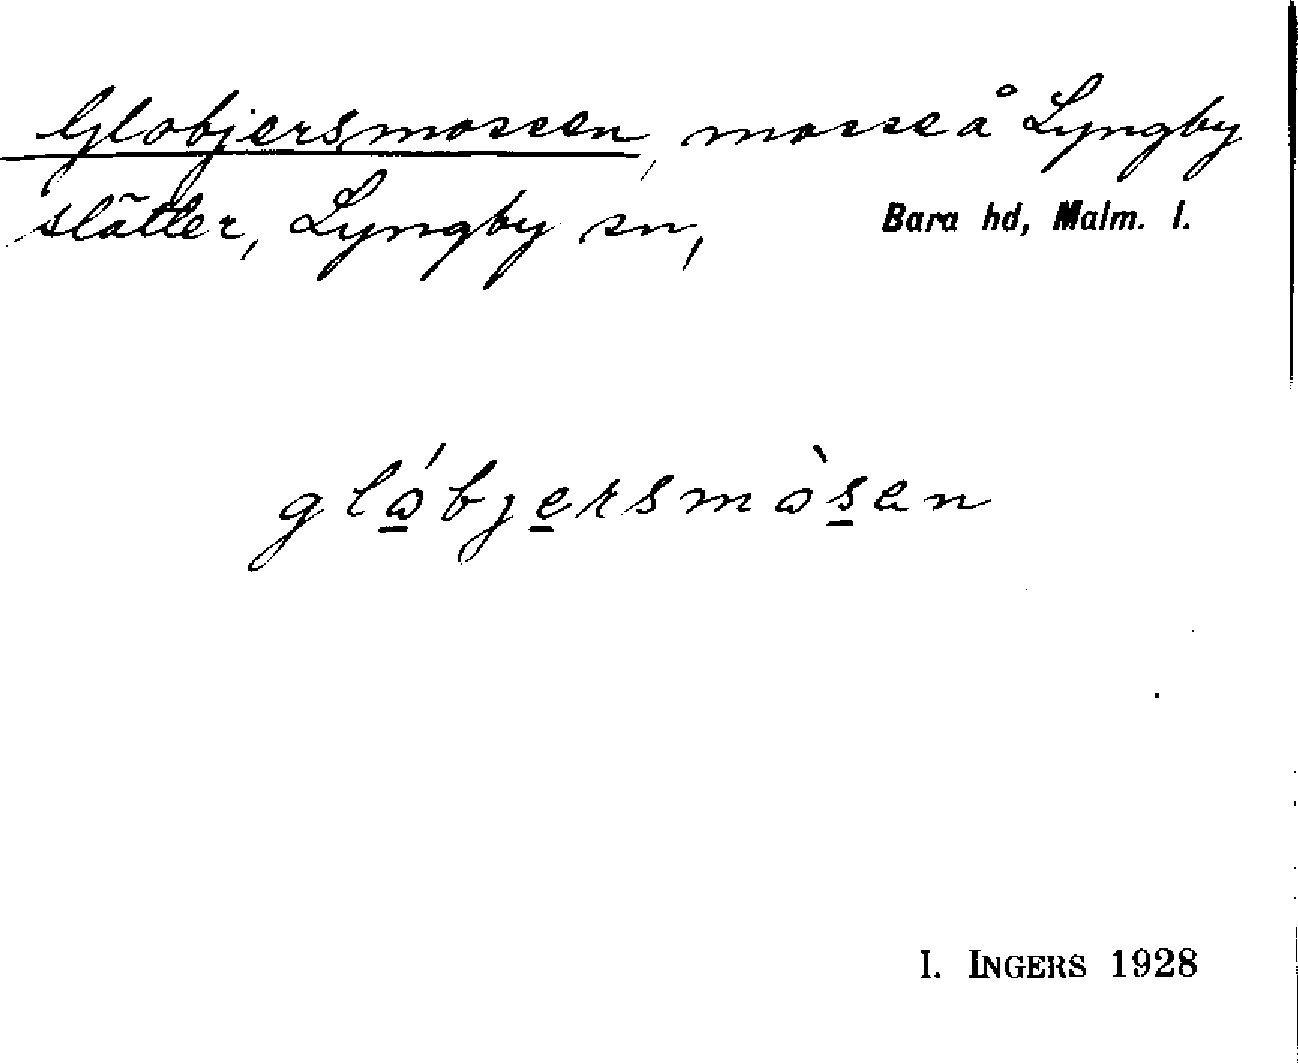 Globjersmossen, mosse å Lyngby
slätter, Lyngby sn, Bara hd, Malm. l.
gló̱bje̱rsmòs̱en
I. INGERS 1928